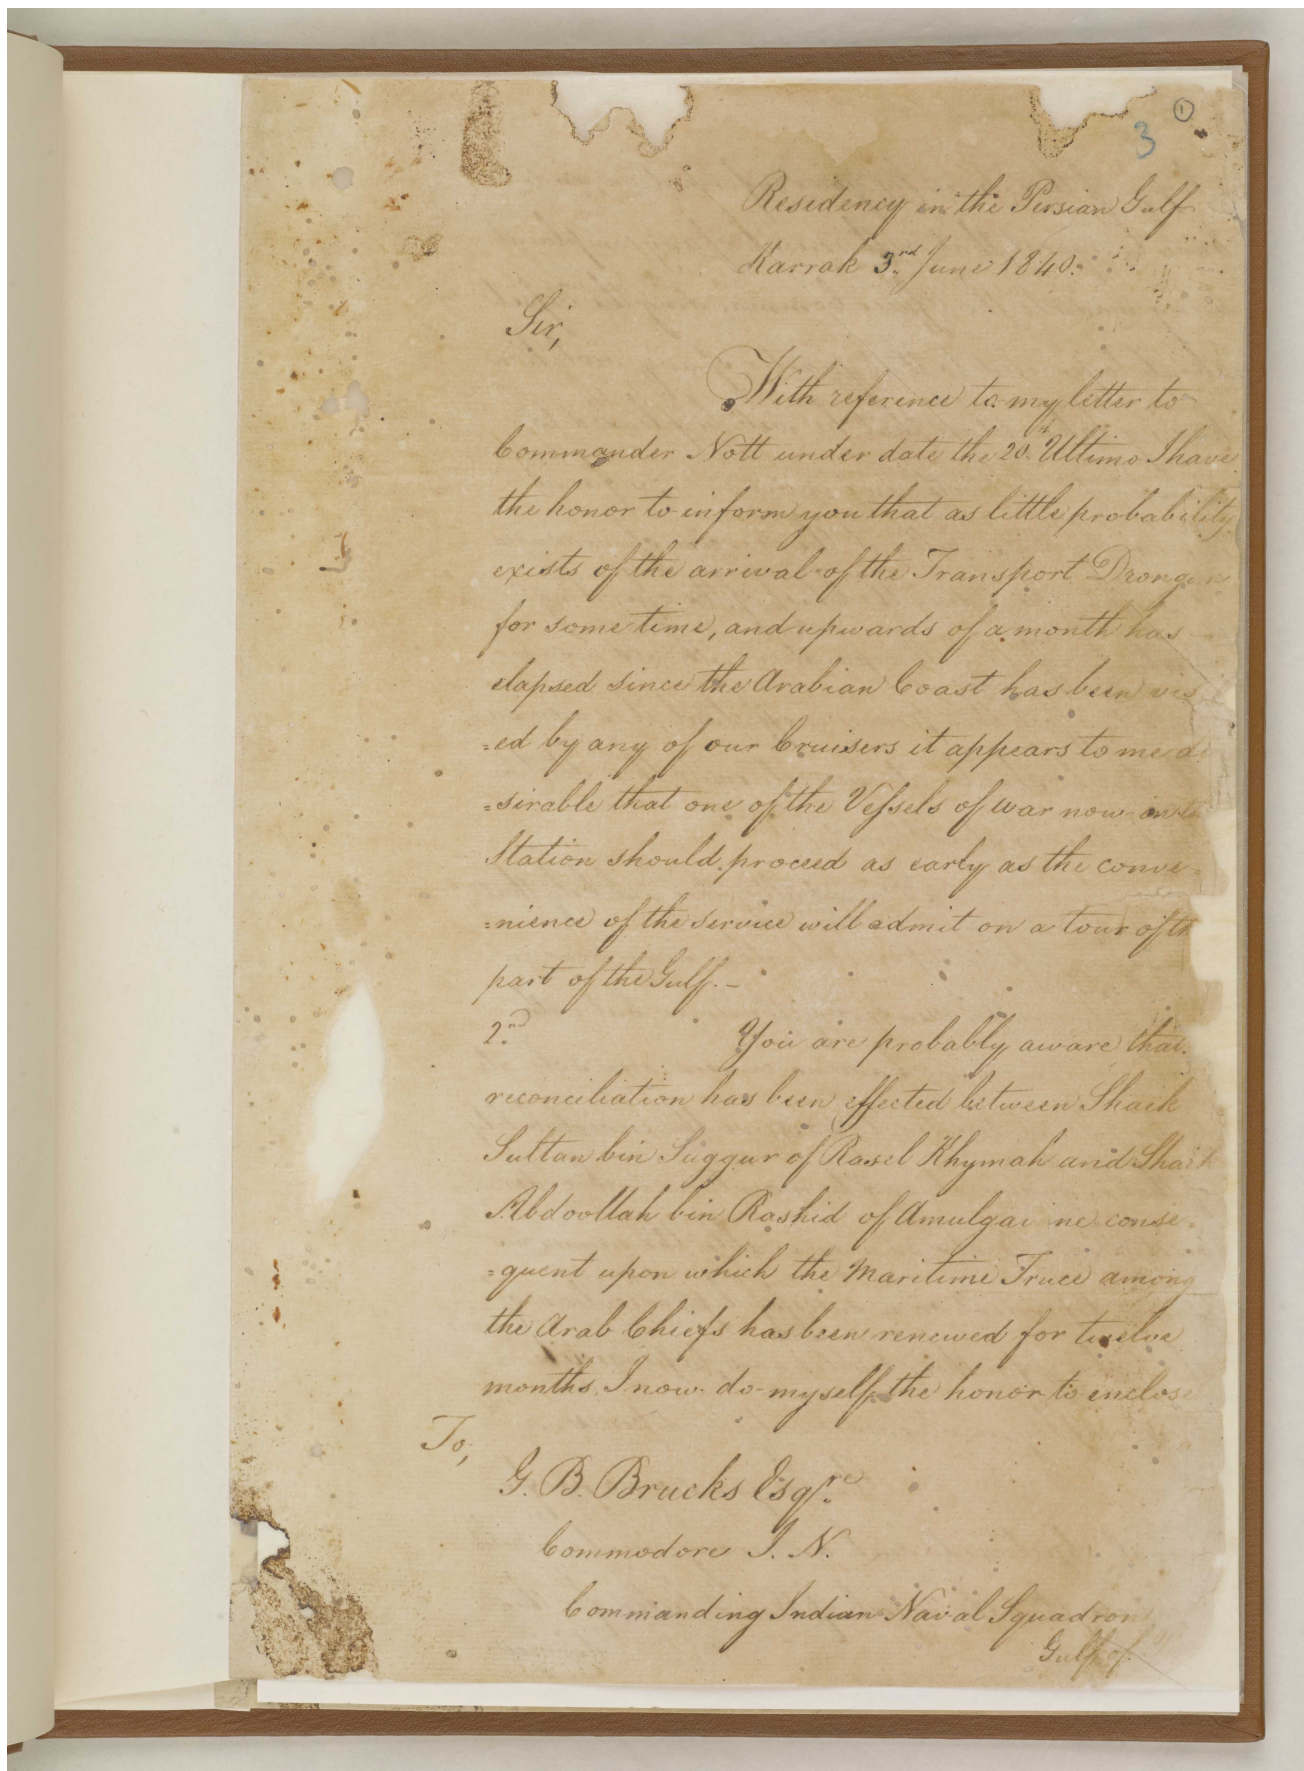 1
3
Residency in the Persian Gulf
Karrak 3rd June 1840.
Sir,
With reference to my letter to
Commander Nott under date the 20th Ultimo I have
the honor to inform you that as little probability
exists of the arrival of the Transport
for some time, and upwards of a month has
elapsed since the Arabian Coast has been vis
=ed by any of our Cruisers it appears to me de
=sirable that one of the Vessels of war now on
Station should proceed as early as the conve=
=nience of the service will admit on a tour of th
part of the Gulf. –
2nd You are probably aware that
reconciliation has been effected between Shaik
Sultan bin Suggur of Rasel Khymah and Shaik
Abdoollah bin Rashid of Amulgavine conse=
=quent upon which the Maritime Truce among
the Arab Chiefs has been renewed for twelve
months. I now do myself the honor to enclose
To,
G. B. Brucks Esqre.
Commodore I. N.
Commanding Indian Naval Squadron
Gulf of